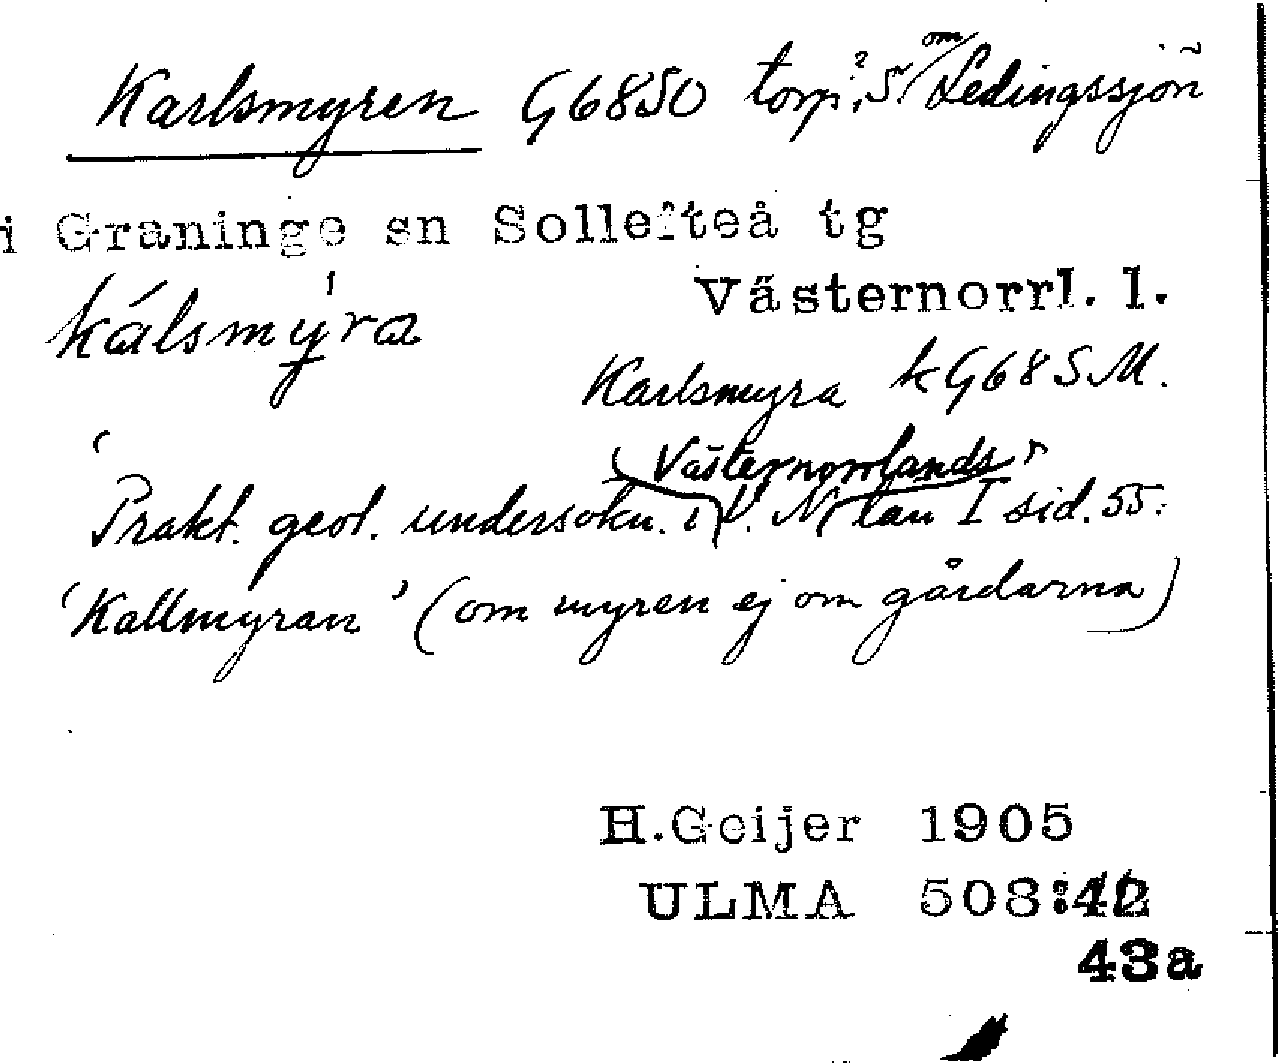 Karlsmyren G68SO torp, S om Ledingssjön
i Graninge sn Sollefteå tg
Västernorrl. l.
kálsmýra
Karlsmyra k G68SM.
Västernorrlands
Prakt. geol. undersökn. i V. N. län I sid. 55:
'Kallmyran' (om myren ej om gårdarna)
H.Geijer 1905
ULMA 508:42
43a